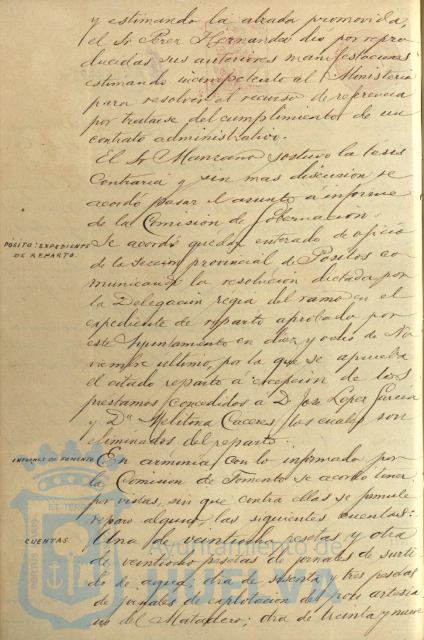 y estimando la alzada promovida,
el Sr Perez Hernandez dio por repro-
ducidas sus anteriores manifestaciones
estimando incompetente al Ministerio
para resolver el recurso de referencia
por tratarse del cumplimiento de un
contrato administrativo.
El Sr Manzano sostuvo la tesis
contraria y sin mas discusion se
acordó pasar el asunto á informe
de la Comision de Gobernacion.
POSITO: EXPEDIENTE
DE REPARTO.
Se acordó quedar enterado de oficio
de la Seccion provincial de Positos co-
municando la resolucion dictada por
la Delegacion regia del ramo en el
expediente de reparto aprobado por
este Ayuntamiento en diez y ocho de No-
viembre último, por la que se aprueba
el citado reparto á excepcion de los
prestamos concedidos á D. Jose Lopez Garcia
y Dª Melitona Caceres, los cuales son
eliminados del reparto.
INFORMES DE FOMENTO
En armonía con lo informado por
la Comision de Fomento se acordó tener
por vistas, sin que contra ellas se formule
reparo alguno, las siguientes cuentas:
CUENTAS.
Una de veintiocho pesetas y otra
de veintiocho pesetas de jornales de surti-
do de agua; otra de sesenta y tres pesetas
de jornales de explotacion del pozo artesia-
no del Matadero; otra de treinta y nueve
Ayuntamiento de
PORTUS MARIS
ET TERRAE